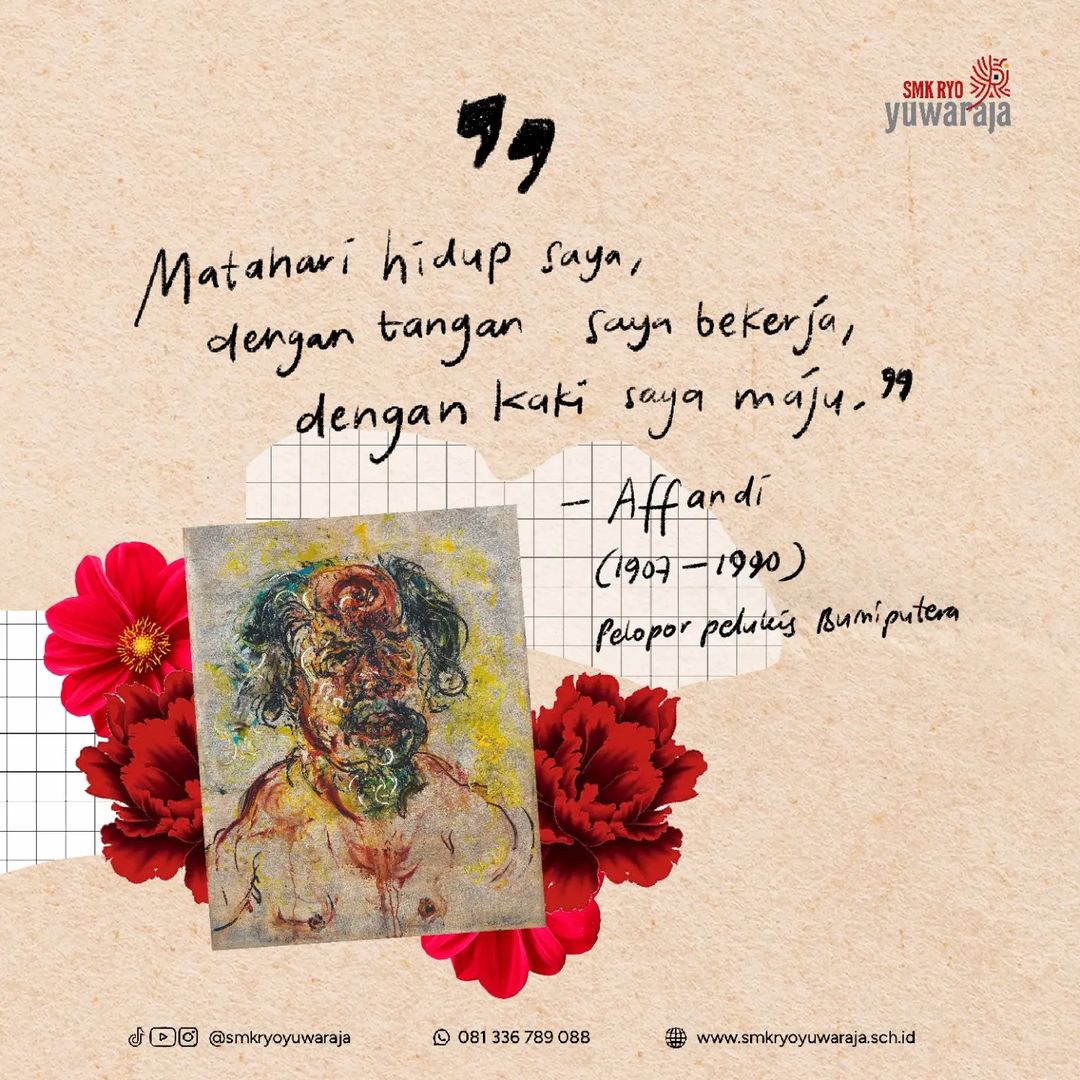 SMK RYO
yuwaraja
"
Matahari hidup saya,
dengan tangan saya bekerja,
dengan kaki saya maju."
- Affandi
(1907-1990)
Pelopor pelukis Bumiputera
@smkryoyuwaraja 081 336 789 088 www.smkryoyuwaraja.sch.id